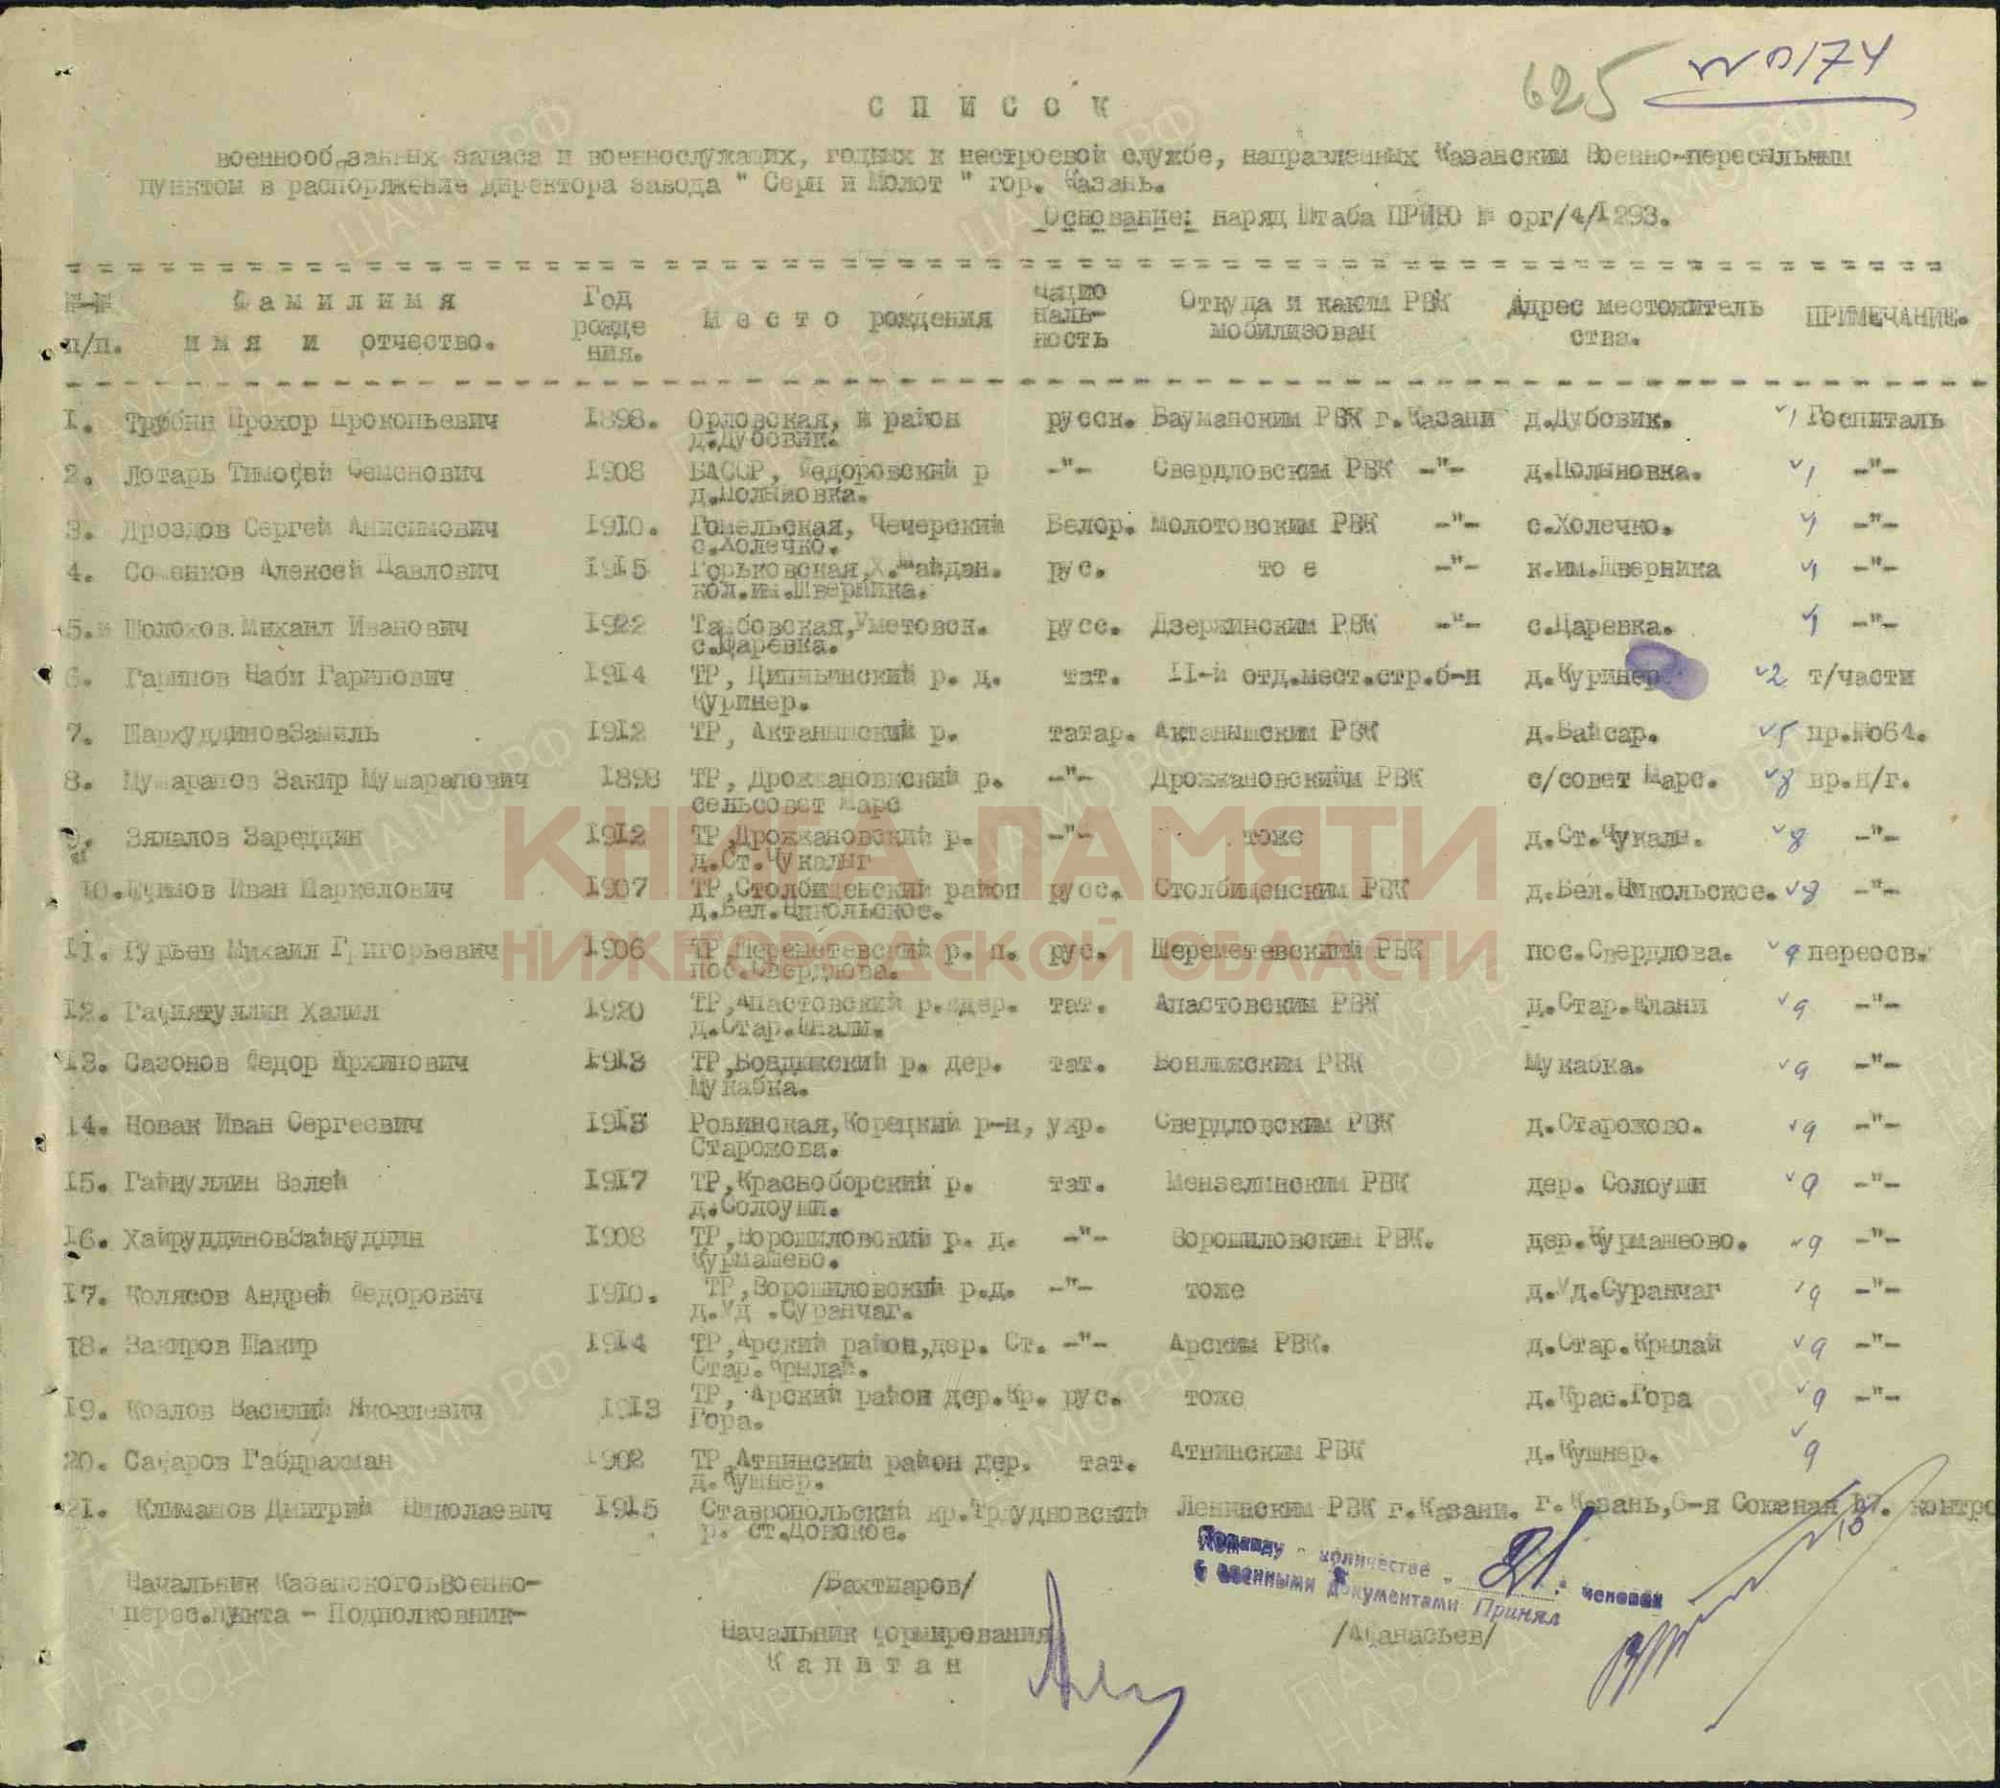 625 № 0174
СПИСОК
военнообязанных запаса и военнослужащих, годных к нестроевой службе, направленных Казанским Военно-пересыльным
пунктом в распоряжение директора завода " Серп и Молот " гор. Казань.
Основание: наряд Штаба ПРИВО № орг/4/1293.
№-№ Фамилимя Год Место рождения нацио Откуда и каким РВК Адрес местожитель ПРИМЕЧАНИЕ.
п/п. имя и отчество. рожде наль- мобилизован ства.
ния. ность
1. Трубин Прохор Прокопьевич 1898. Орловская, район русск. Бауманским РВК г.Казани д.Дубовик. 1 Госпиталь
д.Дубовик.
2. Лотарь Тимофей Семенович 1908 БАССР, Федоровский р -"- Свердловским РВК -"- д.Полыновка. 1 -"-
д.Полыновка.
3. Дроздов Сергей Анисимович 1910. Гомельская, Чечерский Белор. Молотовским РВК -"- с.Холечко. 1 -"-
с.Холечко.
4. Алексей Павлович 1915 Горьковская,Х.Майдан. рус. то е -"- к.им.Шверника 1 -"-
кол.им.Шверника.
5. Шолохов.Михаил Иванович 1922 Тамбовская,Уметовск. русс. Дзержинским РВК -"- с.Царевка. 1 -"-
с.Царевка.
6. Гарипов Наби Гарипович 1914 ТР, р. д. тат. 11-й отд.мест.стр.б-н д.Куринер. 2 т/части
Куринер.
7. ШархуддиновЗамиль 1912 ТР, Актанышский р. татар. Актанышским РВК д.Байсар. 5 пр.№о64.
8. Мушарапов Закир Мушарапович 1898 ТР, р. -"- РВК с/совет Марс. 8 вр.н/г.
сеньсовет Марс
9. Зялалов Зареддин 1912 ТР,Дрожжановский р. -"- тоже д.Ст.Чукалы. 8 -"-
д.Ст.
10. Ефимов Иван Маркелович 1907 ТР,Столбищенский район русс. Столбищенским РВК д.Бел.Никольское. 8 -"-
д.Бел.Никольское.
11. Гурьев Михаил Григорьевич 1906 ТР,Шереметевский р. п. рус. Шереметевскимй РВК пос.Свердлова. 9 переосв.
пос.Свердлова.
12. Гафиятуллин Халил 1920 ТР,Апастовский тат. Апастовским РВК д.Стар. 9 -"-
д.Стар.
13. Сазонов Федор Архипович 1913 ТР,Бондюжский р. дер. тат. РВК Мукабка. 9 -"-
Мукабка.
14. Новак Иван Сергеевич 1913 Ровинская,Корецкий р-н, укр. Свердловским РВК д.Старохово. 9 -"-
Старохова.
15. Гайнуллин Валей 1917 ТР,Красноборский р. тат. Мензелинским РВК дер. Солоуши 9 -"-
д.Солоуши.
16. ХайруддиновЗайнуддин 1908 ТР,Ворошиловский р. д. -"- Ворошиловским РВК. 9 -"-
Курмашево.
17. Колясов Андрей Федорович 1910. ТР,Ворошиловский р.д. -"- тоже д.Уд.Суранчаг 9 -"-
д.Уд .Суранчаг.
18. Закиров Шакир 1914 ТР,Арский район,дер. Ст. -"- Арским РВК. д.Стар.Крылай 9 -"-
Стар.Крылай.
19. Козлов Василий Яковлевич 1913 ТР, Арский район дер.Кр. рус. тоже д.Крас.Гора 9 -"-
Гора.
20. Сафаров Габдрахман 1902 ТР,Атнинский район дер. тат. Атнинским РВК д.Кушнер. 9
д.Кушнер.
21. Климашов Дмитрий Николаевич 1915 Ставропольский кр. Ленинским РВК г.Казани. г.Казань,6-я Союзная контро
р. ст.Донское.
Начальник КазанскогоьВоенно- /Бахтиаров/
перес.пункта - Подполковник-
Команду в количестве 21 человек
с военными документами Принял
Начальник формирования /Афанасьев/
Капитан
КНИГА ПАМЯТИ
НИЖЕГОРОДСКОЙ ОБЛАСТИ